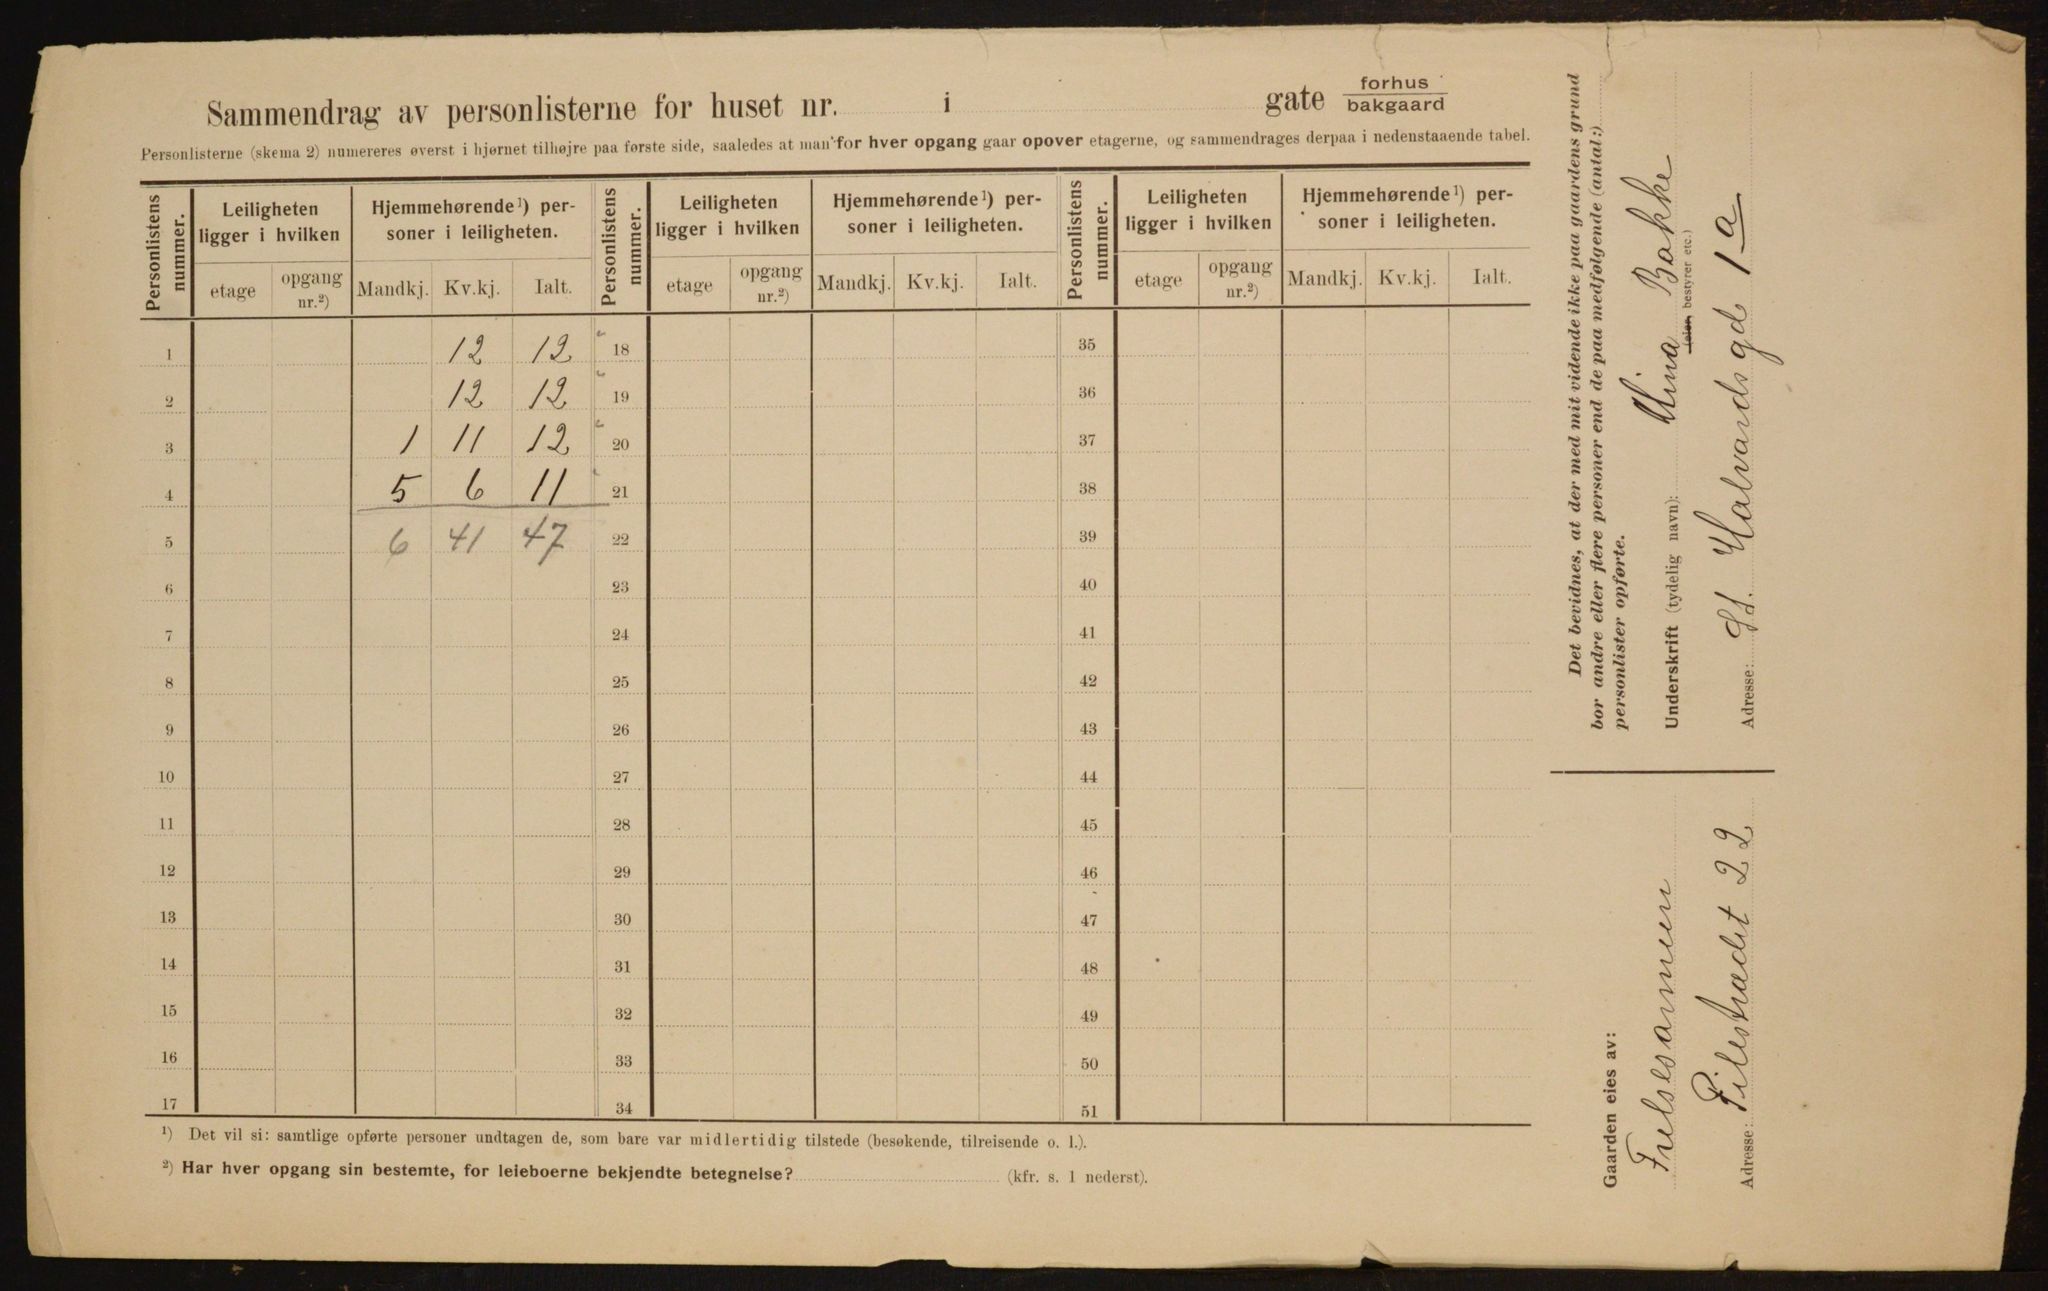 Sammendrag av personlisterne for huset nr. i gate forhus
bakgaard
Personlisterne (skema 2) numereres øverst i hjørnet tilhøjre paa første side, saaledes at man for hver opgang gaar opover etagerne, og sammendrages derpaa i nedenstaaende tabel.
Personlistens nummer. Leiligheten ligger i hvilken Hjemmehørende¹) personer i leiligheten. Personlistens nummer. Leiligheten ligger i hvilken Hjemmehørende¹) personer i leiligheten. Personlistens nummer. Leiligheten ligger i hvilken Hjemmehørende¹) personer i leiligheten.
etage opgang nr.²) Mandkj. Kv.kj. Ialt. etage opgang nr.²) Mandkj. Kv.kj. Ialt. etage opgang nr.²) Mandkj. Kv.kj. Ialt.
1 12 12 18 35
2 12 12 19 36
3 1 11 12 20 37
4 5 6 11 21 38
5 6 41 47 22 39
6 23 40
7 24 41
8 25 42
9 26 43
10 27 44
11 28 45
12 29 46
13 30 47
14 31 48
15 32 49
16 33 50
17 34 51
¹) Det vil si: samtlige opførte personer undtagen de, som bare var midlertidig tilstede (besøkende, tilreisende o. l.).
²) Har hver opgang sin bestemte, for leieboerne bekjendte betegnelse? (kfr. s. 1 nederst).
Det bevidnes, at der med mit vidende ikke paa gaardens grund
bor andre eller flere personer end de paa medfølgende (antal:)
personlister opførte.
Underskrift (tydelig navn): Bakke
(eier, bestyrer etc.)
Adresse: St. Halvards gd 1a
Gaarden eies av:
Frelsesarmeen
Adresse: Pilestrædet 22